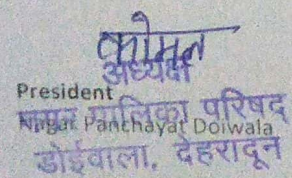 कोमल
अध्यक्ष
President
नगर पालिका परिषद
Nagar Panchayat Doiwala
डोईवाला, देहरादून